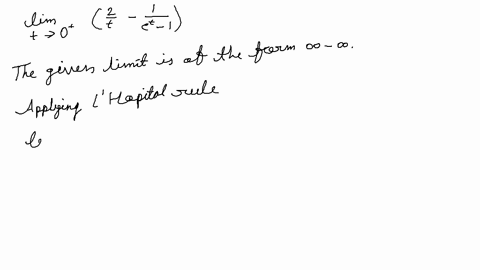 lim t → 0⁺ (2/t - 1/(eᵗ-1))
The given limit is of the form ∞ - ∞.
Applying L'Hopital rule